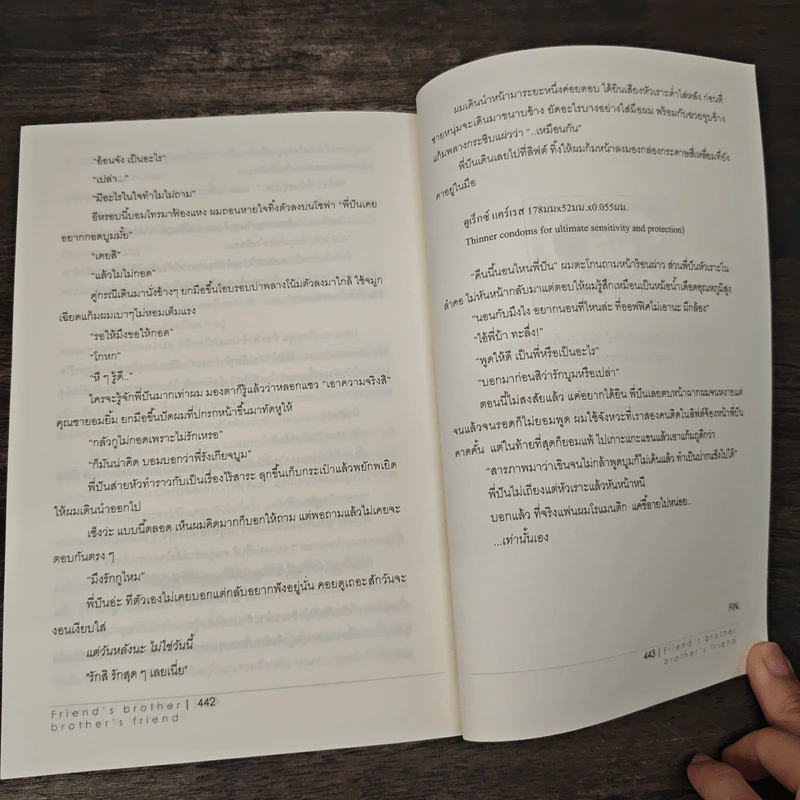 “อ้อนจัง เป็นอะไร”
“เปล่า...”
“มีอะไรในใจทำไมไม่ถาม”
อีหรอบนี้บอมโทรมาฟ้องแหง ผมถอนหายใจทิ้งตัวลงบนโซฟา “พี่ปันเคย
อยากกอดบูมมั้ย”
“เคยสิ”
“แล้วไมไม่กอด”
คู่กรณีเดินมานั่งข้างๆ ยกมือขึ้นโอบรอบบ่าพลางโน้มตัวลงมาใกล้ ใช้จมูก
เฉียดแก้มผมเบาๆ ไม่หอมเต็มแรง
“รอให้มึงขอให้กอด”
“โกหก”
“หึ ๆ รู้ดี..”
ใครจะรู้จักพี่ปันมากเท่าผม มองตาก็รู้แล้วว่าหลอกแซว “เอาความจริงสิ”
คุณชายอมยิ้ม ยกมือขึ้นปัดผมที่ปรกหน้าขึ้นมาทัดหูให้
“กลัวกูไม่กอดเพราะไม่รักเหรอ”
“ก็มันน่าคิด บอมบอกว่าพี่รังเกียจบูม”
พี่ปันส่ายหัวทำราวกับเป็นเรื่องไร้สาระ ลุกขึ้นเก็บกระเป๋าแล้วพยักพเยิด
ให้ผมเดินนำออกไป
เซ็งว่ะ แบบนี้ตลอด เห็นผมคิดมากก็บอกให้ถาม แต่พอถามแล้วไม่เคยจะ
ตอบกันตรง ๆ
“มึงรักกูไหม”
พี่ปันอ่ะ ทีตัวเองไม่เคยบอกแต่กลับอยากฟังอยู่นั่น คอยดูเถอะสักวันจะ
งอนเงียบใส่
แต่วันหลังนะ ไม่ใช่วันนี้
“รักสิ รักสุด ๆ เลยเนี่ย”
Friend's brother | 442
brother's friend
ผมเดินนำหน้ามาระยะหนึ่งค่อยตอบ ได้ยินเสียงหัวเราะต่ำไล่หลัง ก่อนที่
ชายหนุ่มจะเดินมาขนาบข้าง ยัดอะไรบางอย่างใส่มือผม พร้อมกับฉวยจูบข้าง
แก้มพลางกระซิบแผ่วว่า “..เหมือนกัน”
พี่ปันเดินเลยไปที่ลิฟต์ ทิ้งให้ผมก้มหน้าลงมองกล่องกระดาษสี่เหลี่ยมที่ยัง
คาอยู่ในมือ
ดูเร็กซ์ แคร์เรส 178มมx52มม.x0.055มม.
Thinner condoms for ultimate sensitivity and protection)
“คืนนี้นอนไหนพี่ปัน” ผมตะโกนถามหน้าร้อนผ่าว ส่วนพี่ปันหัวเราะใน
ลำคอ ไม่หันหน้ากลับมาแต่ตอบให้ผมรู้สึกเหมือนเป็นหม้อน้ำเดือดอุณหภูมิสูง
“นอนกับมึงไง อยากนอนที่ไหนล่ะ ที่ออฟฟิศไม่เอานะ มีกล้อง”
“ไอ้พี่บ้า ทะลึ่ง!”
“พูดให้ดี เป็นพี่หรือเป็นอะไร”
“บอกมาก่อนสิว่ารักบูมหรือเปล่า”
ตอนนี้ไม่สงสัยแล้ว แค่อยากได้ยิน พี่ปันเลยตบหน้าผากผมจนหงายแต่
จนแล้วจนรอดก็ไม่ยอมพูด ผมใช้จังหวะที่เราสองคนติดในลิฟต์จ้องหน้าพี่ปัน
คาดคั้น แต่ในท้ายที่สุดก็ยอมแพ้ ไปเกาะแกะแขนแล้วเอาแก้มถูดีกว่า
“สารภาพมาว่าเขินจนไม่กล้าพูดบูมก็ไม่เค้นแล้ว ทำเป็นปากแข็งไปได้”
พี่ปันไม่เถียงแต่หัวเราะแล้วหันหน้าหนี
บอกแล้ว ที่จริงแฟนผมโรแมนติก แค่ขี้อายไปหน่อย..
...เท่านั้นเอง
FIN.
443 | Friend's brother
brother's friend